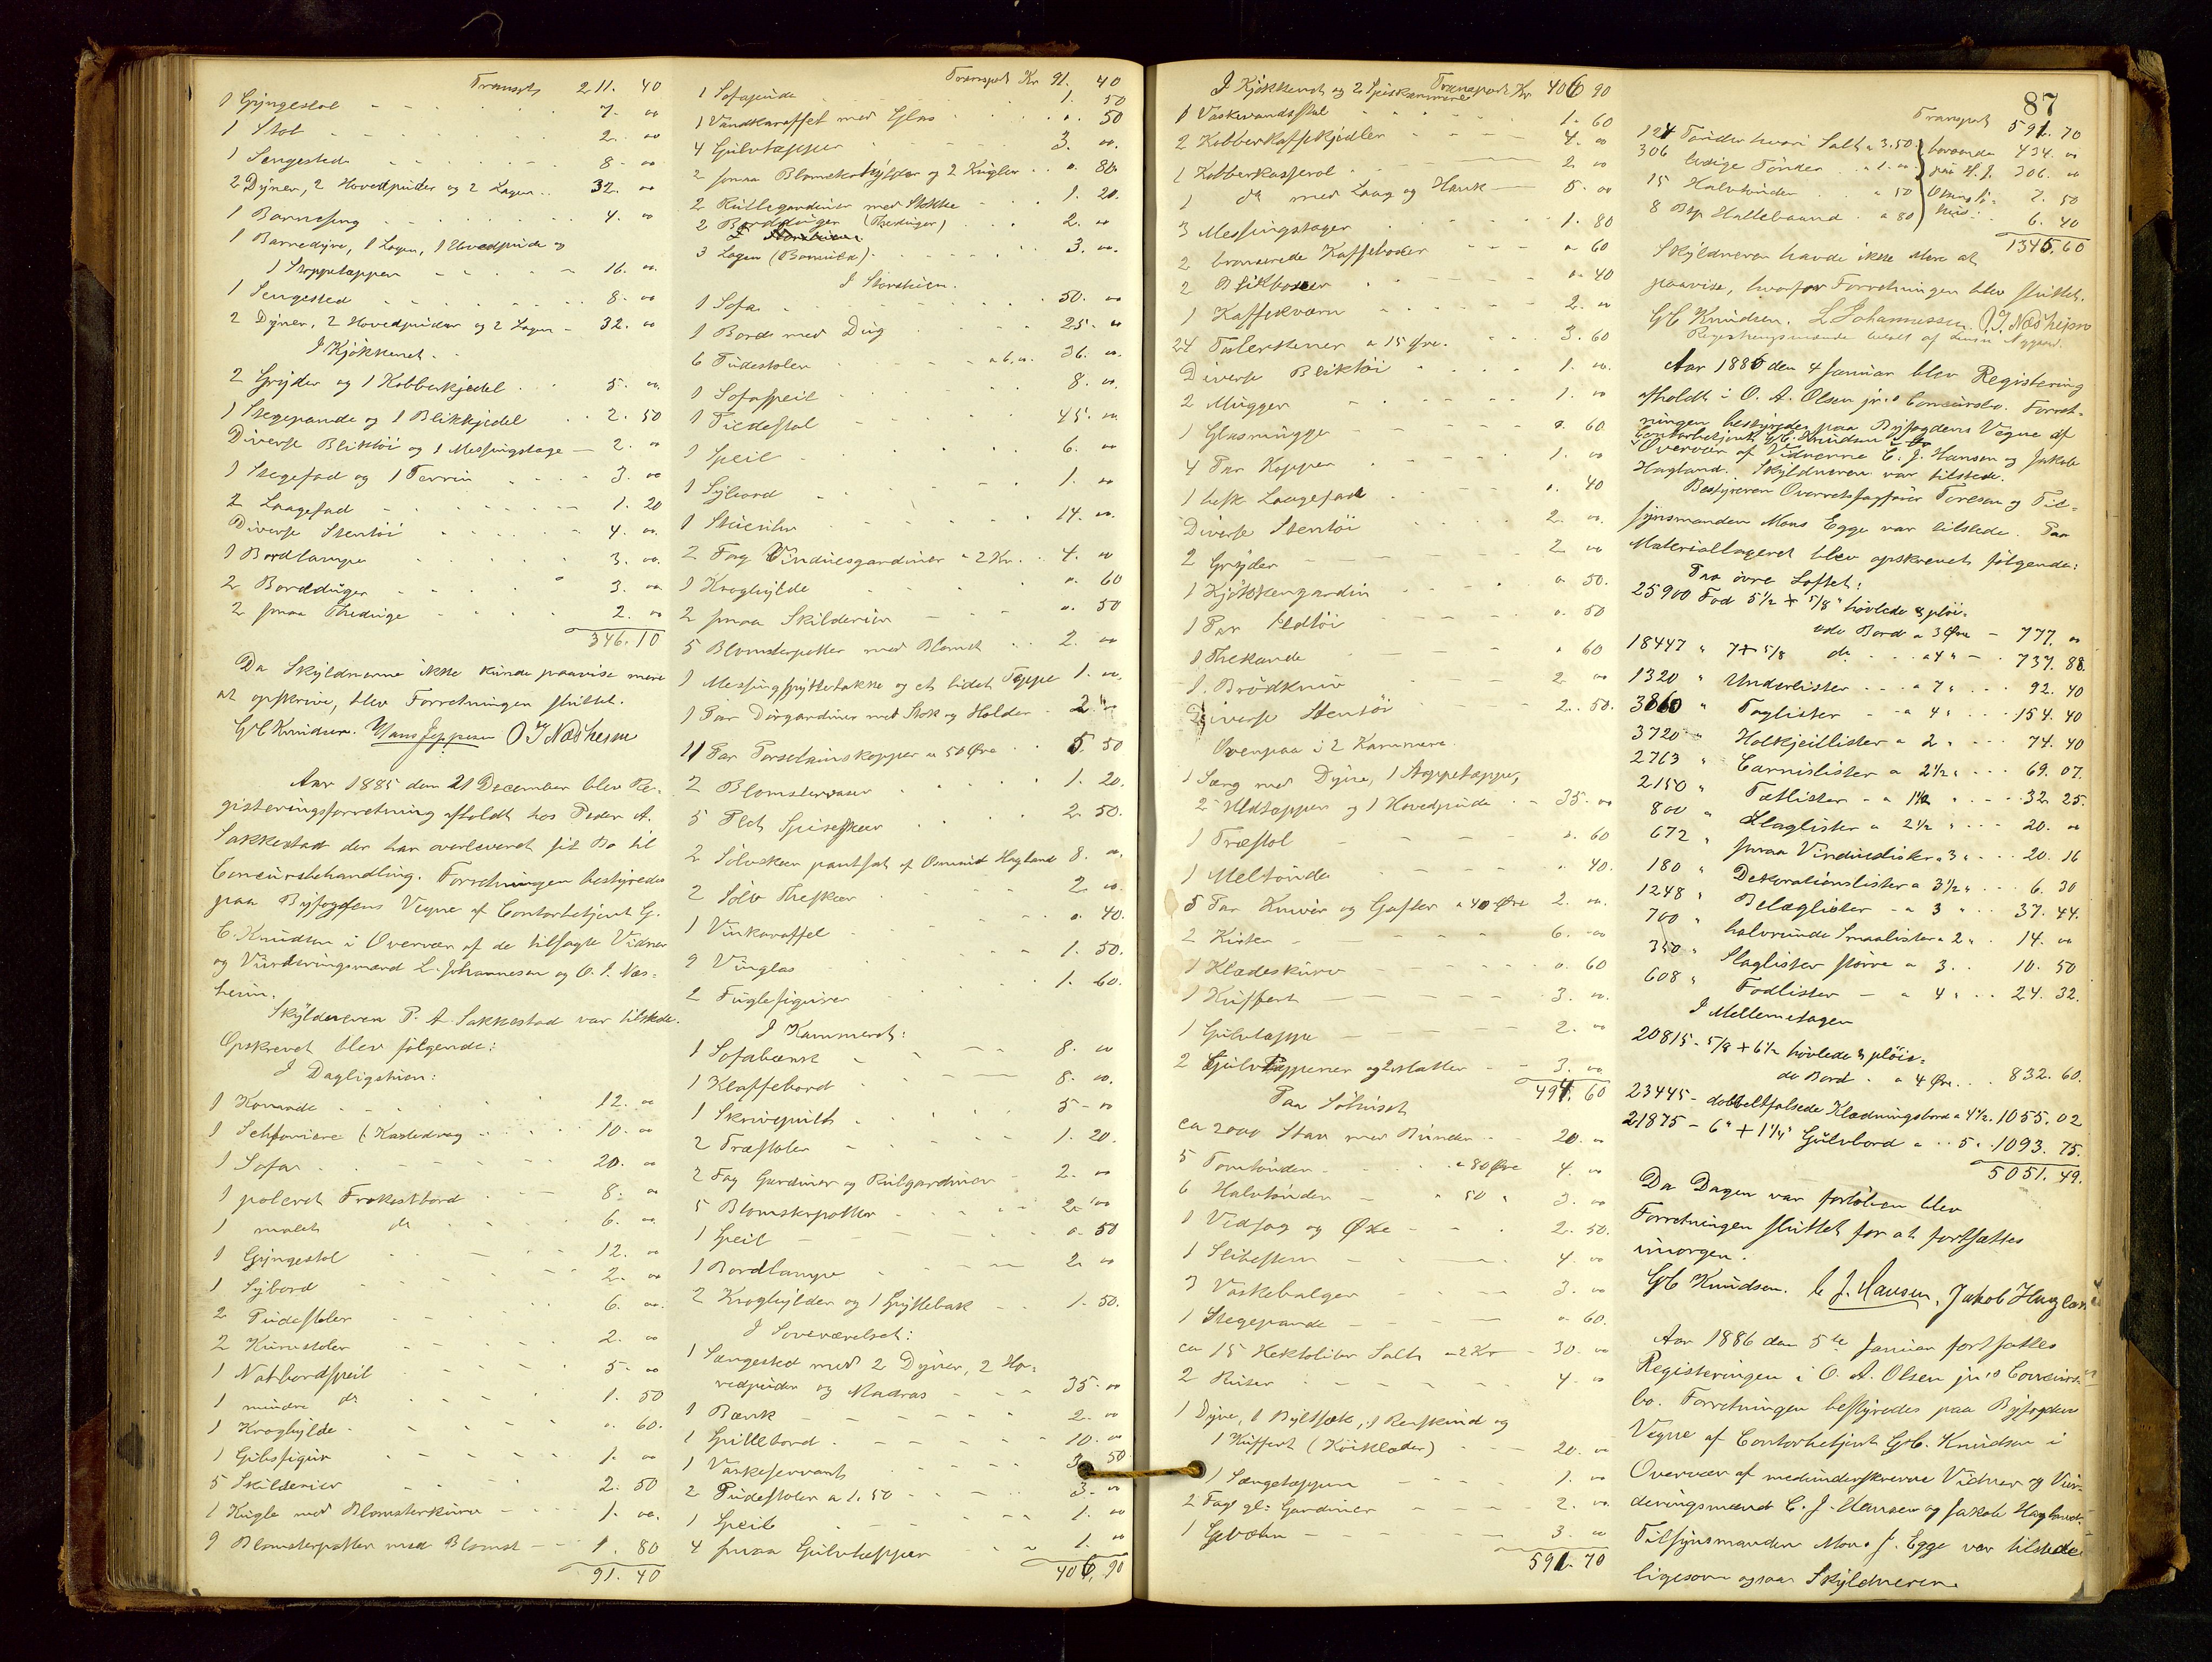 Transpt 211. 40
1 Gyngestol 7. 00
1 Stol 2. 00
1 Sengested 8. 00
2 Dyner, 2 Hovedpuder og 2 Lagen 32. 00
1 Barneseng 4. 00
1 Barnedyne, 1 Lagen, 1 Hovedpude og
1 Stoppetæppen 16. 00
1 Sengested 8. 00
2 Dyner, 2 Hovedpuder og 2 Lagen 32. 00
I Kjøkkenet.
2 Gryder og 1 Kobberkjedel 5. 00
1 Stegepande og 1 Blikkjedel 2. 50
Diverse Bliktøi og 1 Messingstage 2. 00
1 Stegefad og 1 Terrin 3. 00
2 Laagefad 1. 20
Diverse Stentøi 4. 00
1 Bordlampe 3. 00
2 Bordduger 3. 00
2 smaa Theduge 2. 00
346. 10
Da Skyldnerne ikke kunde paavise mere
at opskrive, blev Forretningen sluttet.
G C Knudsen. Hans Jeppesen O J Nædheim
Aar 1885 den 21 December blev Re-
gisteringsforretning afholdt hos Peder A.
Sakkestad der har overleveret sit Bo til
Concursbehandling. Forretningen bestyredes
paa Byfogdens Vegne af Contorbetjent G.
C. Knudsen i Overvær af de tilsagte Vidner
og Vurderingsmænd L. Johannesen og O. J. Næs-
heim.
Skyldneren P. A. Sakkestad var tilstede.
Opskrevet blev følgende:
I Dagligstuen:
1 Komode 12. 00
1 Schfoniere (Kastedrag 10. 00
1 Sofa 20. 00
1 poleret Frokostbord 8. 00
1 malet do 6. 00
1 Gyngestol 12. 00
1 Sybord 2. 00
2 Pudestoler 6. 00
2 Kurvstoler 2. 00
1 Natbordspeil 5. 00
1 mindre do 1. 50
1 Kroghylde 0. 60.
1 Gibsfigur 1. 00
5 Skilderier 2. 50
1 Kugle med Blomsterkurv 1. 00.
9 Blomsterpotter med Blomst 1. 80
91. 40
Transpot Kr 91. 40
1 Sofapude 1. 50
1 Vandkaraffel med Glas 0. 50
4 Gulvtæpper 3. 00.
2 smaa Blomsterhylder og 2 Kugler 0. 80.
2 Rullegardiner med Stokke 1. 20.
2 Bordduger (Theduger) 2. 00
3 Lagen (Bomuld) 3. 00.
I Storstuen.
1 Sofa 50. 00
1 Bord med Dug 25. 00
6 Pudestoler a 6.00 36. 00.
1 Sofaspeil 8. 00.
1 Pidestal 45. 00
1 Speil 6. 00
1 Sybord 1. 00
1 Stueuhr 14. 00.
2 Fag Vinduesgardiner a 2 Kr. 4. 00
1 Kroghylde 0. 60
2 smaa Skilderier 0. 50
5 Blomsterpotter med Blomst 2. 00
1 Messingspyttebakke og et lidet Tæppe 1. 00.
1 Par Dørgardiner med Stok og Holder 2. 00
11 Par Porselainskopper a 50 Øre 5. 50
2 Blomstervaser 1. 20.
5 Plet Spiseskeer 2. 50.
2 Sølvskeer pantsat af Osmund Hagland 8. 00.
2 Sølv Theskeer 2. 00.
1 Vinkaraffel 0. 40.
9 Vinglas 1. 50.
2 Fuglefigurer 1. 60.
I Kammeret:
1 Sofabænk 8. 00
1 Klaffebord 8. 00.
1 Skrivepult 5. 00
2 Træstoler 1. 20.
2 Fag Gardiner og Rulgardiner 2. 00
5 Blomsterpotter 2. 00
1 Speil 0. 50
1 Bordlampe 2. 00
2 Kroghylder og 1 Spyttebak 1. 50.
I Soveværelset:
1 Sængested med 2 Dyner, 2 Ho-
vedpuder og Madras 35. 00
1 Bænk 2. 00
1 Spillebord 10. 00
1 Vaskeservant 3. 50
2 Pudestoler a 1. 50 3. 00
1 Speil 1. 00
4 smaa Gulvtæpper 1. 00
406. 90
I Kjøkkenet og 2 Spiskammere Transport Kr 406 90
1 Vaskevandsstol 1. 60
2 Kobberkaffekjedler 4. 00
1 Kobberkasserol 2. 00
1 do med Laag og Hank 5. 00
3 Messingstager 1. 80
2 bronserede Kaffeboxer 0. 60
2 Blikboxer 0. 40
1 Kaffekværn 2. 00
24 Tallerkener a 15 Øre. 3. 60
Diverse Bliktøi 1. 00.
2 Mugger 1. 00
1 Glasmugge 0. 60
4 Par Kopper 1. 00
1 besk. Laagefad 0. 40
Diverse Stentøi 2. 00.
2 Gryder 2. 00
1 Kjøkkengardin 0 50.
1 Par Ildtøi 0. 50
1 Thekande 0 60
1 Brødkniv 2. 00
Diverse Stentøi 2. 50.
Ovenpaa i 2 Kammere.
1 Sæng med Dyne, 1 Stoppetæppe,
2 Uldtæpper og 1 Hovedpude 35. 00
1 Træstol 0. 60
1 Meltønde 0. 40.
5 Par Knive og Gafler a 40 Øre 2. 00.
2 Kister 6. 00
1 Klædeskurv 0. 60
1 Kuffert 3. 00.
1 Gulvtæppe 2. 00
2 Gulvtæppener og 2 Matter 3. 00
494. 60
Paa Søhuset
ca 2000 Stav med Bunder 20. 00
5 Tomtønder a 80 Øre 4. 00
6 Halvtønder a 50 " 3. 00
1 Vedsag og Øxe 2. 50.
1 Slibesten 4. 00
3 Vaskebalger 3. 00
1 Stegepande 0 60.
ca 15 Hektoliter Salt a 2 Kr 30. 00
2 Ruser 4. 00
1 Dyne, 1 Byltsæk, 1 Renskind og
1 Kuffert (Køiklæder) 20. 00
1 Sængetæppen 1. 00
2 Fag gl: Gardiner 2. 00.
1 Gevær 3. 00
591. 70
87
Transpot 591. 70
124 Tønder hvori Salt a 3.50 434. 00
306 ledige Tønder a 1.00 306. 00
15 Halvtønder a 50 7. 50
8 Bdt Hallebaand a 80 6. 40
beroende paa H. J.
1345.60
Skyldneren havde ikke mere at
paavise, hvorfor Forretningen blev sluttet.
G C Knudsen. L Johannessen. O J. Nædheim
Aar 1886 den 4 Januar blev Registering
afholdt i O. A. Olsen jr.s Concursbo. Forret-
ningen bestyredes paa Byfogdens Vegne af
Contorbetjent G. C. Knudsen i
Overvær af Vidnerne C. J. Hansen og Jakob
Hagland. Skyldneren var tilstede.
Bestyreren Overretssagfører Toresen og Til-
synsmanden Mons Egge var tilstede. Paa
Materiallageret blev opskrevet følgende:
Paa øvre Loftet:
25900 Fod 5 1/2 + 5/8" høvlede & pløi-
ede Bord a 3 Øre 777. 00
18447 " 7 + 5/8 do a 4 " 737. 88.
1320 " Underlister a 7 " 92. 40
3860 " Taglister a 4 " 154. 40
3720 " Holkjeillister a 2 " 74. 40
2763 " Carnislister a 2 1/2 " 69. 07.
2150 " Tætlister a 1 1/2 " 32 25.
800 " Slaglister a 2 1/2 " 20. 00
672 " smaa Vindueslister a 3 " 20. 16
180 " Dekorationslister a 3 1/2 " 6. 30
1248 " Belæglister a 3 " 37. 44.
700 " halvrunde Smaalister a 2 " 14. 00
350 " Slaglister større a 3. 10. 50
608 " Fodlister a 4 " 24. 32.
I Mellemetagen
20815 - 5/8 + 6 1/2 høvlede & pløie-
de Bord a 4 Øre 832. 60.
23445 - dobbeltfalsede Klædningsbord a 4 1/2 1055. 02
21875 - 6" + 1 1/4" Gulvbord a 5 1093. 75.
5051. 49.
Da Dagen var forløben blev
Forretningen sluttet for at fortsættes
imorgen.
G C Knudsen. C. J. Hansen, Jakob Haglan
Aar 1886 den 5te Januar fortsattes
Registeringen i O. A. Olsen jr.s Concurs-
bo. Forretningen bestyredes paa Byfogdens
Vegne af Contorbetjent G. C. Knudsen i
Overvær af medunderskrevne Vidner og Vur-
deringsmænd C. J. Hansen og Jakob Hagland.
Tilsynsmanden Mons J. Egge var tilstede
ligesom ogsaa Skyldneren.